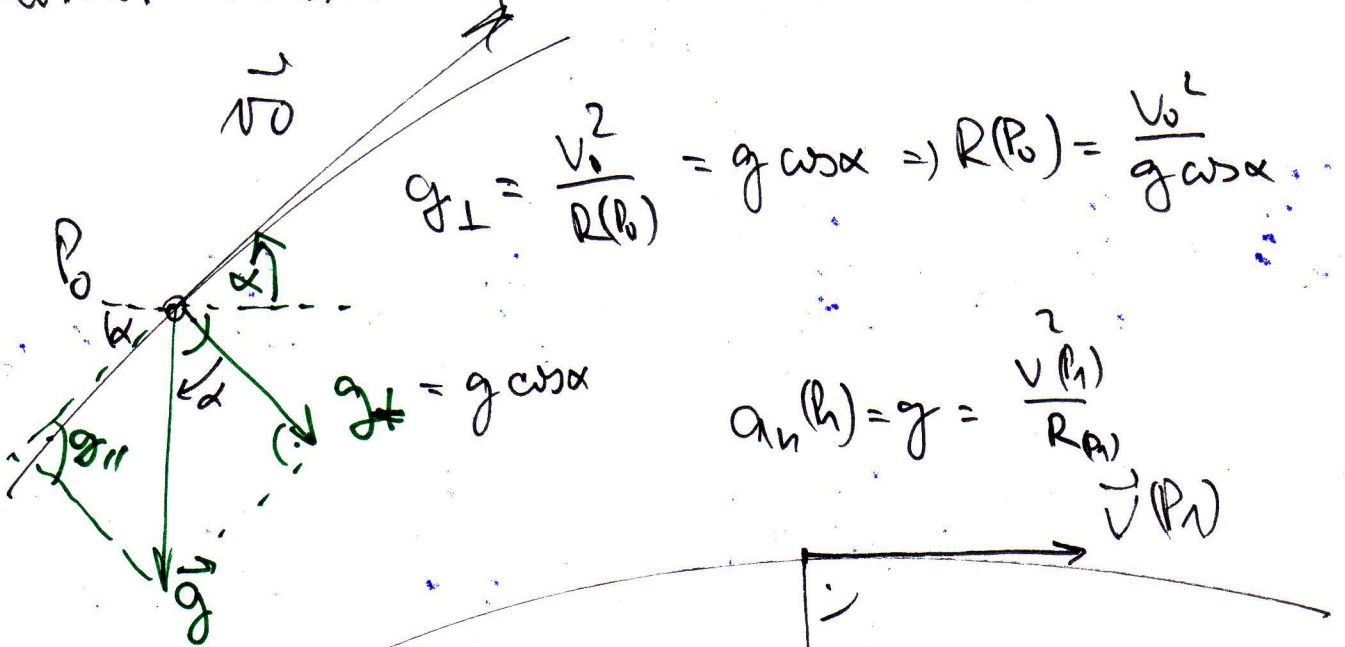 v⃗0
g⊥ = v₀² / R(P₀) = g cosα => R(P₀) = v₀² / g cosα
P₀
α
α
α
g⊥ = g cosα
g∥
g⃗
aₙ(P₁) = g = v²(P₁) / R(P₁)
v⃗(P₁)